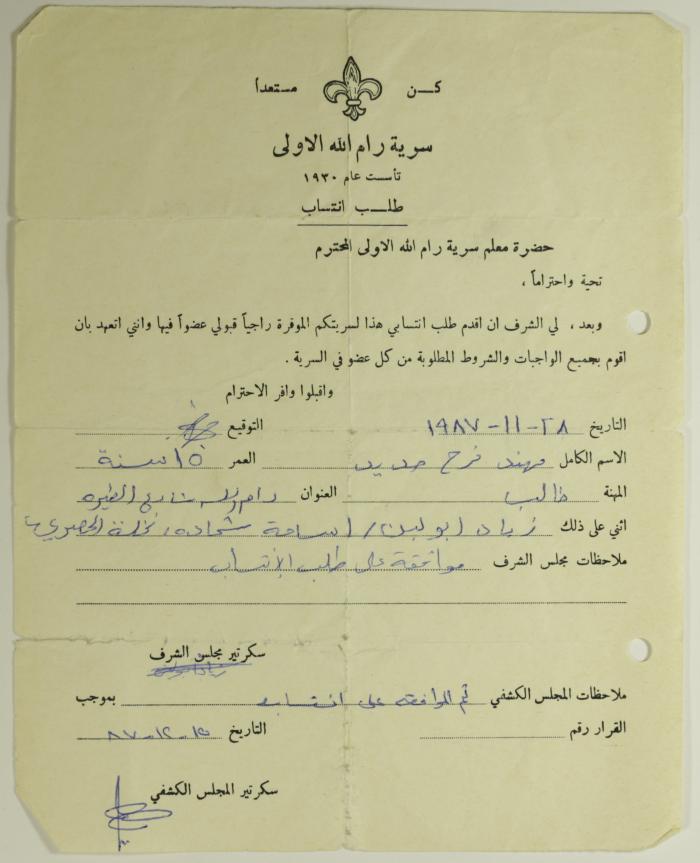 كــن مستعداً
سرية رام الله الاولى
تأسست عام ١٩٣٠
طلــب انتساب
حضرة معلم سرية رام الله الاولى المحترم
تحية واحتراماً ،
وبعد ، لي الشرف ان اقدم طلب انتسابي هذا لسريتكم الموقرة راجياً قبولي عضواً فيها وانني اتعهد بان
اقوم بجميع الواجبات والشروط المطلوبة من كل عضو في السرية .
واقبلوا وافر الاحترام
التاريخ ٢٨-١١-١٩٨٧ التوقيع
الاسم الكامل مهند فرح حديد العمر ١٥ سنة
المهنة طالب العنوان رام الله شارع الطيره
اثني على ذلك زياد ابو لبن / اسامة شحاده ، نخلة الحصري
ملاحظات مجلس الشرف موافقة على طلب الانتساب
سكرتير مجلس الشرف
ملاحظات المجلس الكشفي تم الموافقه على انتسابه بموجب
القرار رقم التاريخ ١٥-١٢-٨٧
سكرتير المجلس الكشفي